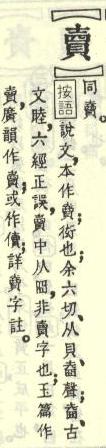 【賣】
同賣。
按語 說文,本作𧷗,衒也,余六切,从貝,𡍬聲,𡍬,古
文睦,六經正誤,賣中从囧,非賣字也,玉篇作
賣,廣韻作賣,或作儥,詳賣字註。